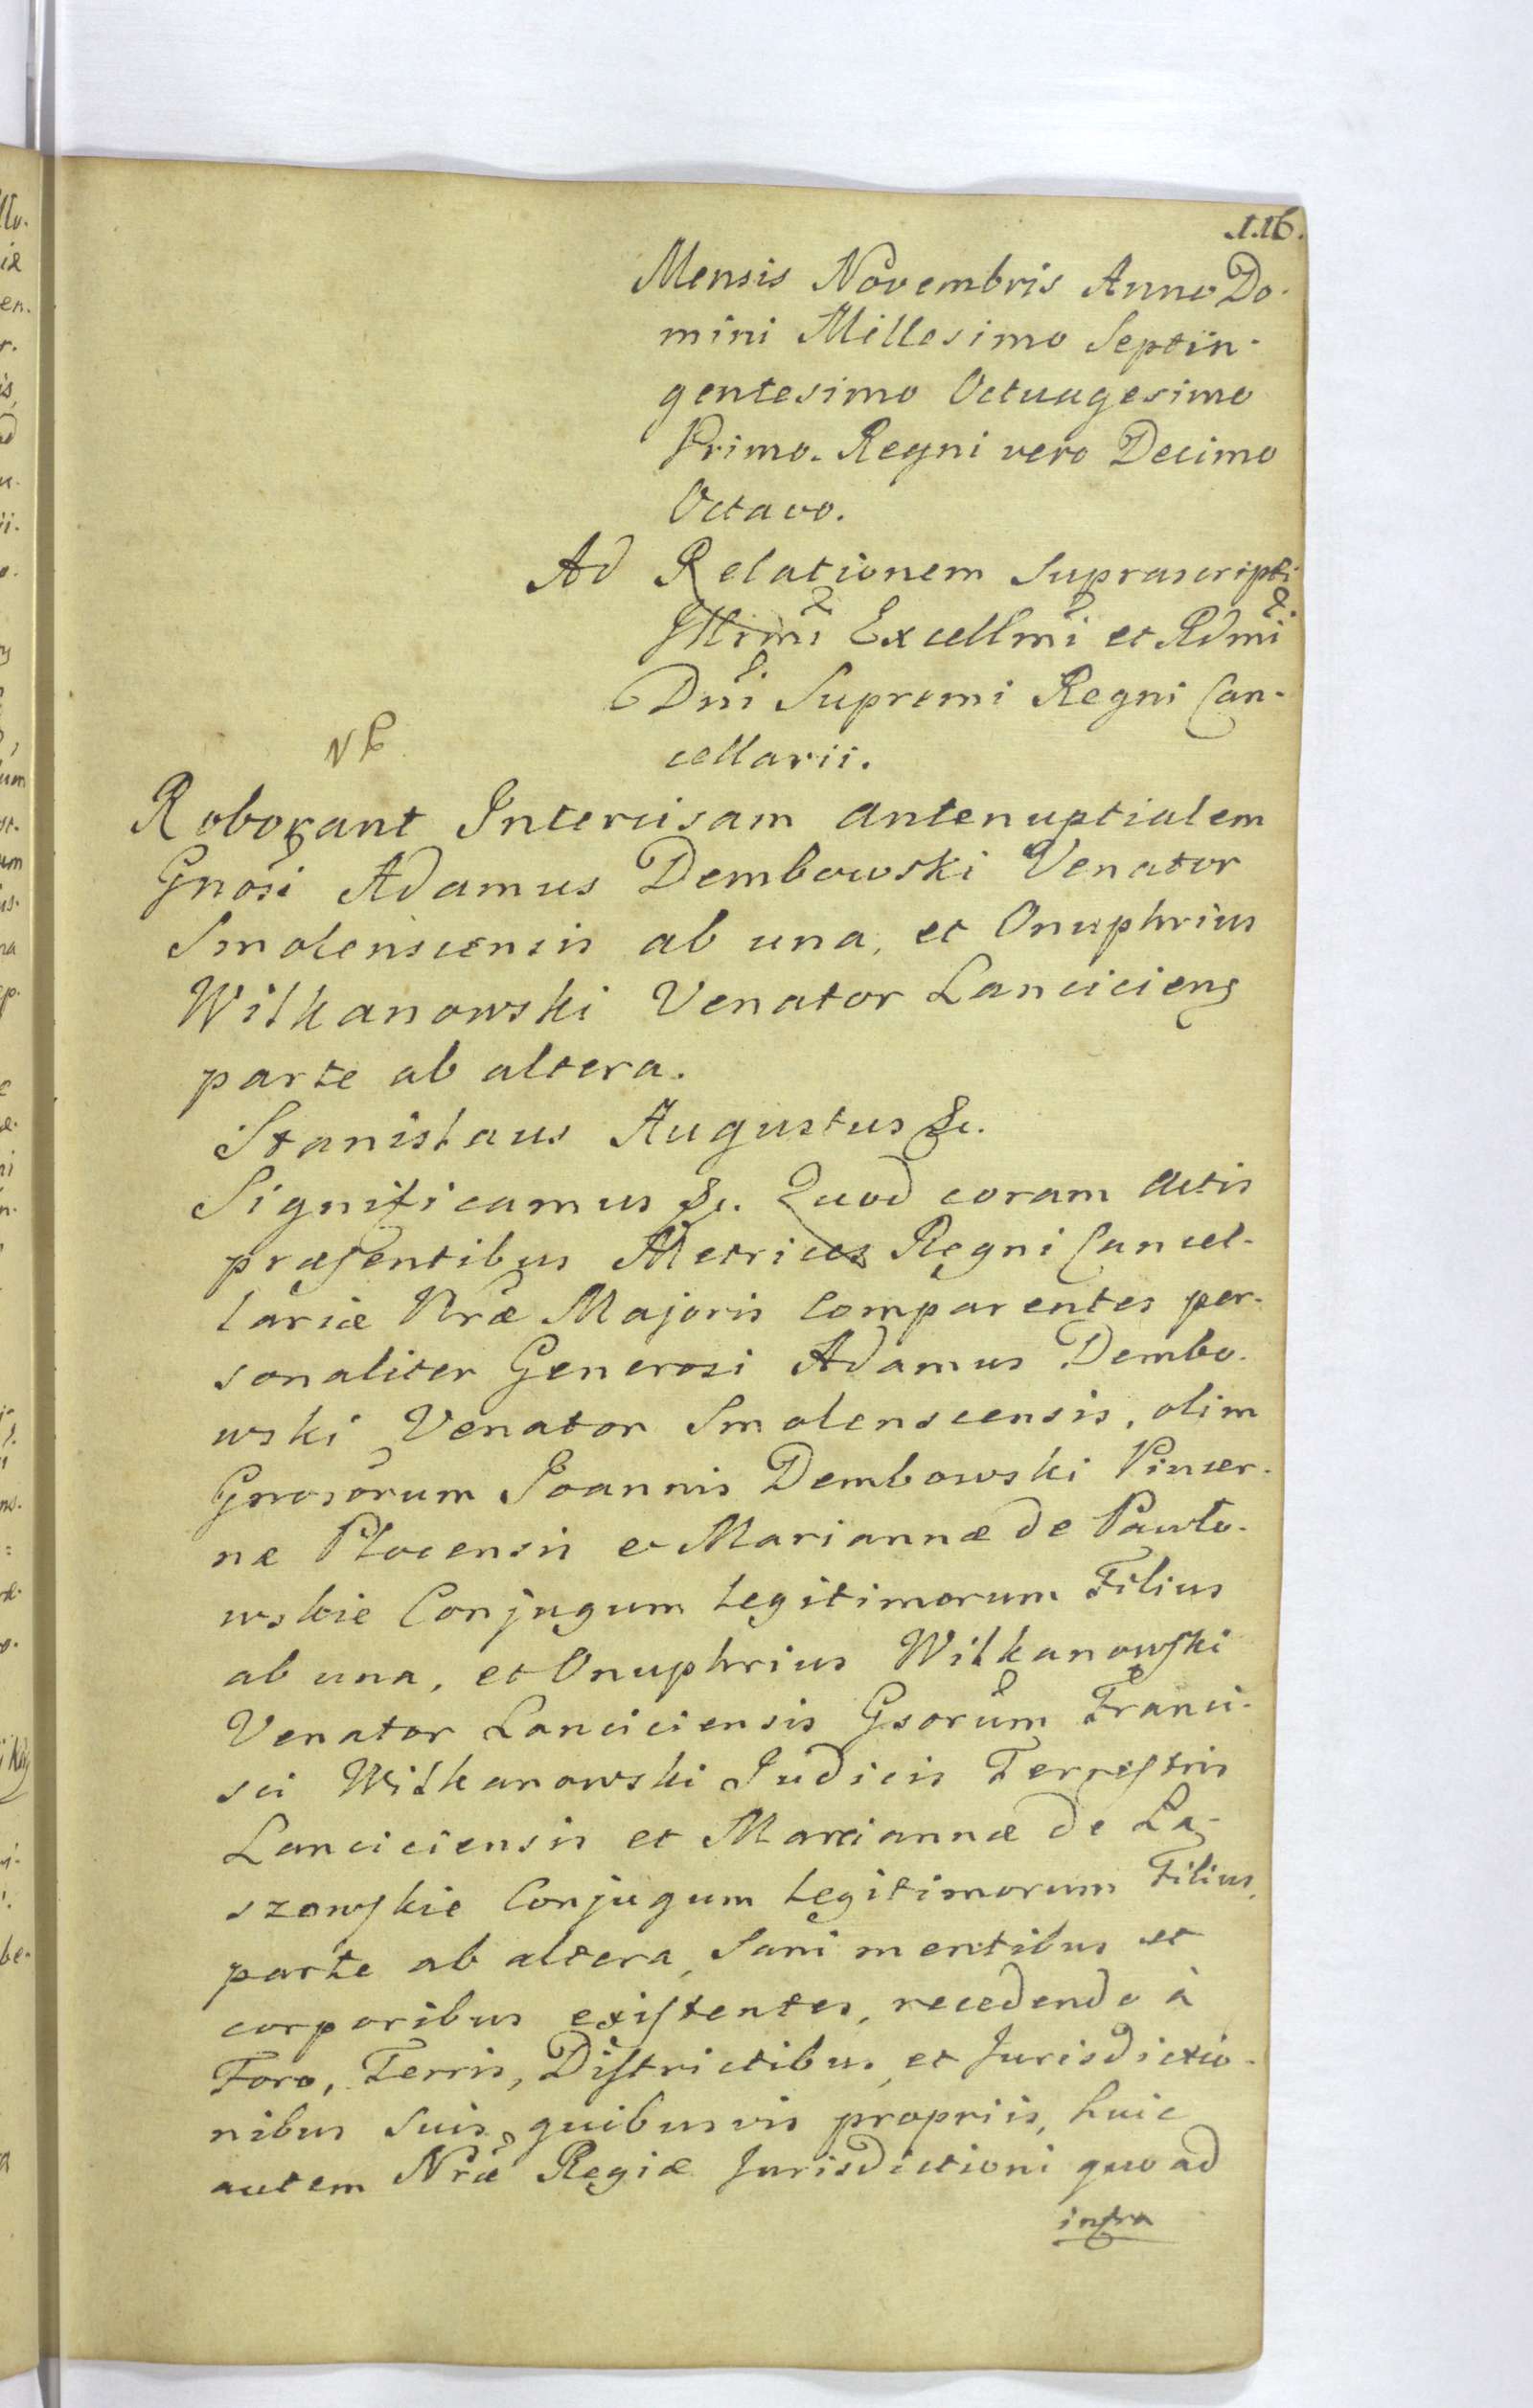 116.
Mensis Novembris Anno Do-
mini Millesimo Septin-
gentesimo Octuagesimo
Primo. Regni vero Decimo
Octavo.
Ad Relationem Suprascripti
Illrimi Excellmi et Rdmi
Dni Supremi Regni Can-
cellarii.
NB
Roborant Intercisam antenuptialem
Gnosi Adamus Dembowski Venator
Smolenscensis ab una, et Onuphrius
Wilkanowski Venator Lanciciens
parte ab altera.
Stanislaus Augustus &c.
Significamus &c. Quod coram Actis
præsentibus Metrices Regni Cancel-
lariæ Nræ Majoris Comparentes per-
sonaliter Generosi Adamus Dembo-
wski Venator Smolenscensis, olim
Gnosorum Joannis Dembowski Pincer-
næ Plocensis et Mariannæ de Pawło-
wskie Conjugum legitimorum Filius
ab una, et Onuphrius Wilkanowski
Venator Lanciciensis Gsorum Franci-
sci Wilkanowski Judicis Terrestris
Lanciciensis et Mariannæ de La-
szewskie Conjugum legitimorum Filius,
parte ab altera, Sani mentibus et
corporibus existentes, recedendo à
Foro, Terris, Districtibus, et Jurisdictio-
nibus Suis quibusvis propriis, huic
autem Nræ Regiæ Jurisdictioni quoad
infra